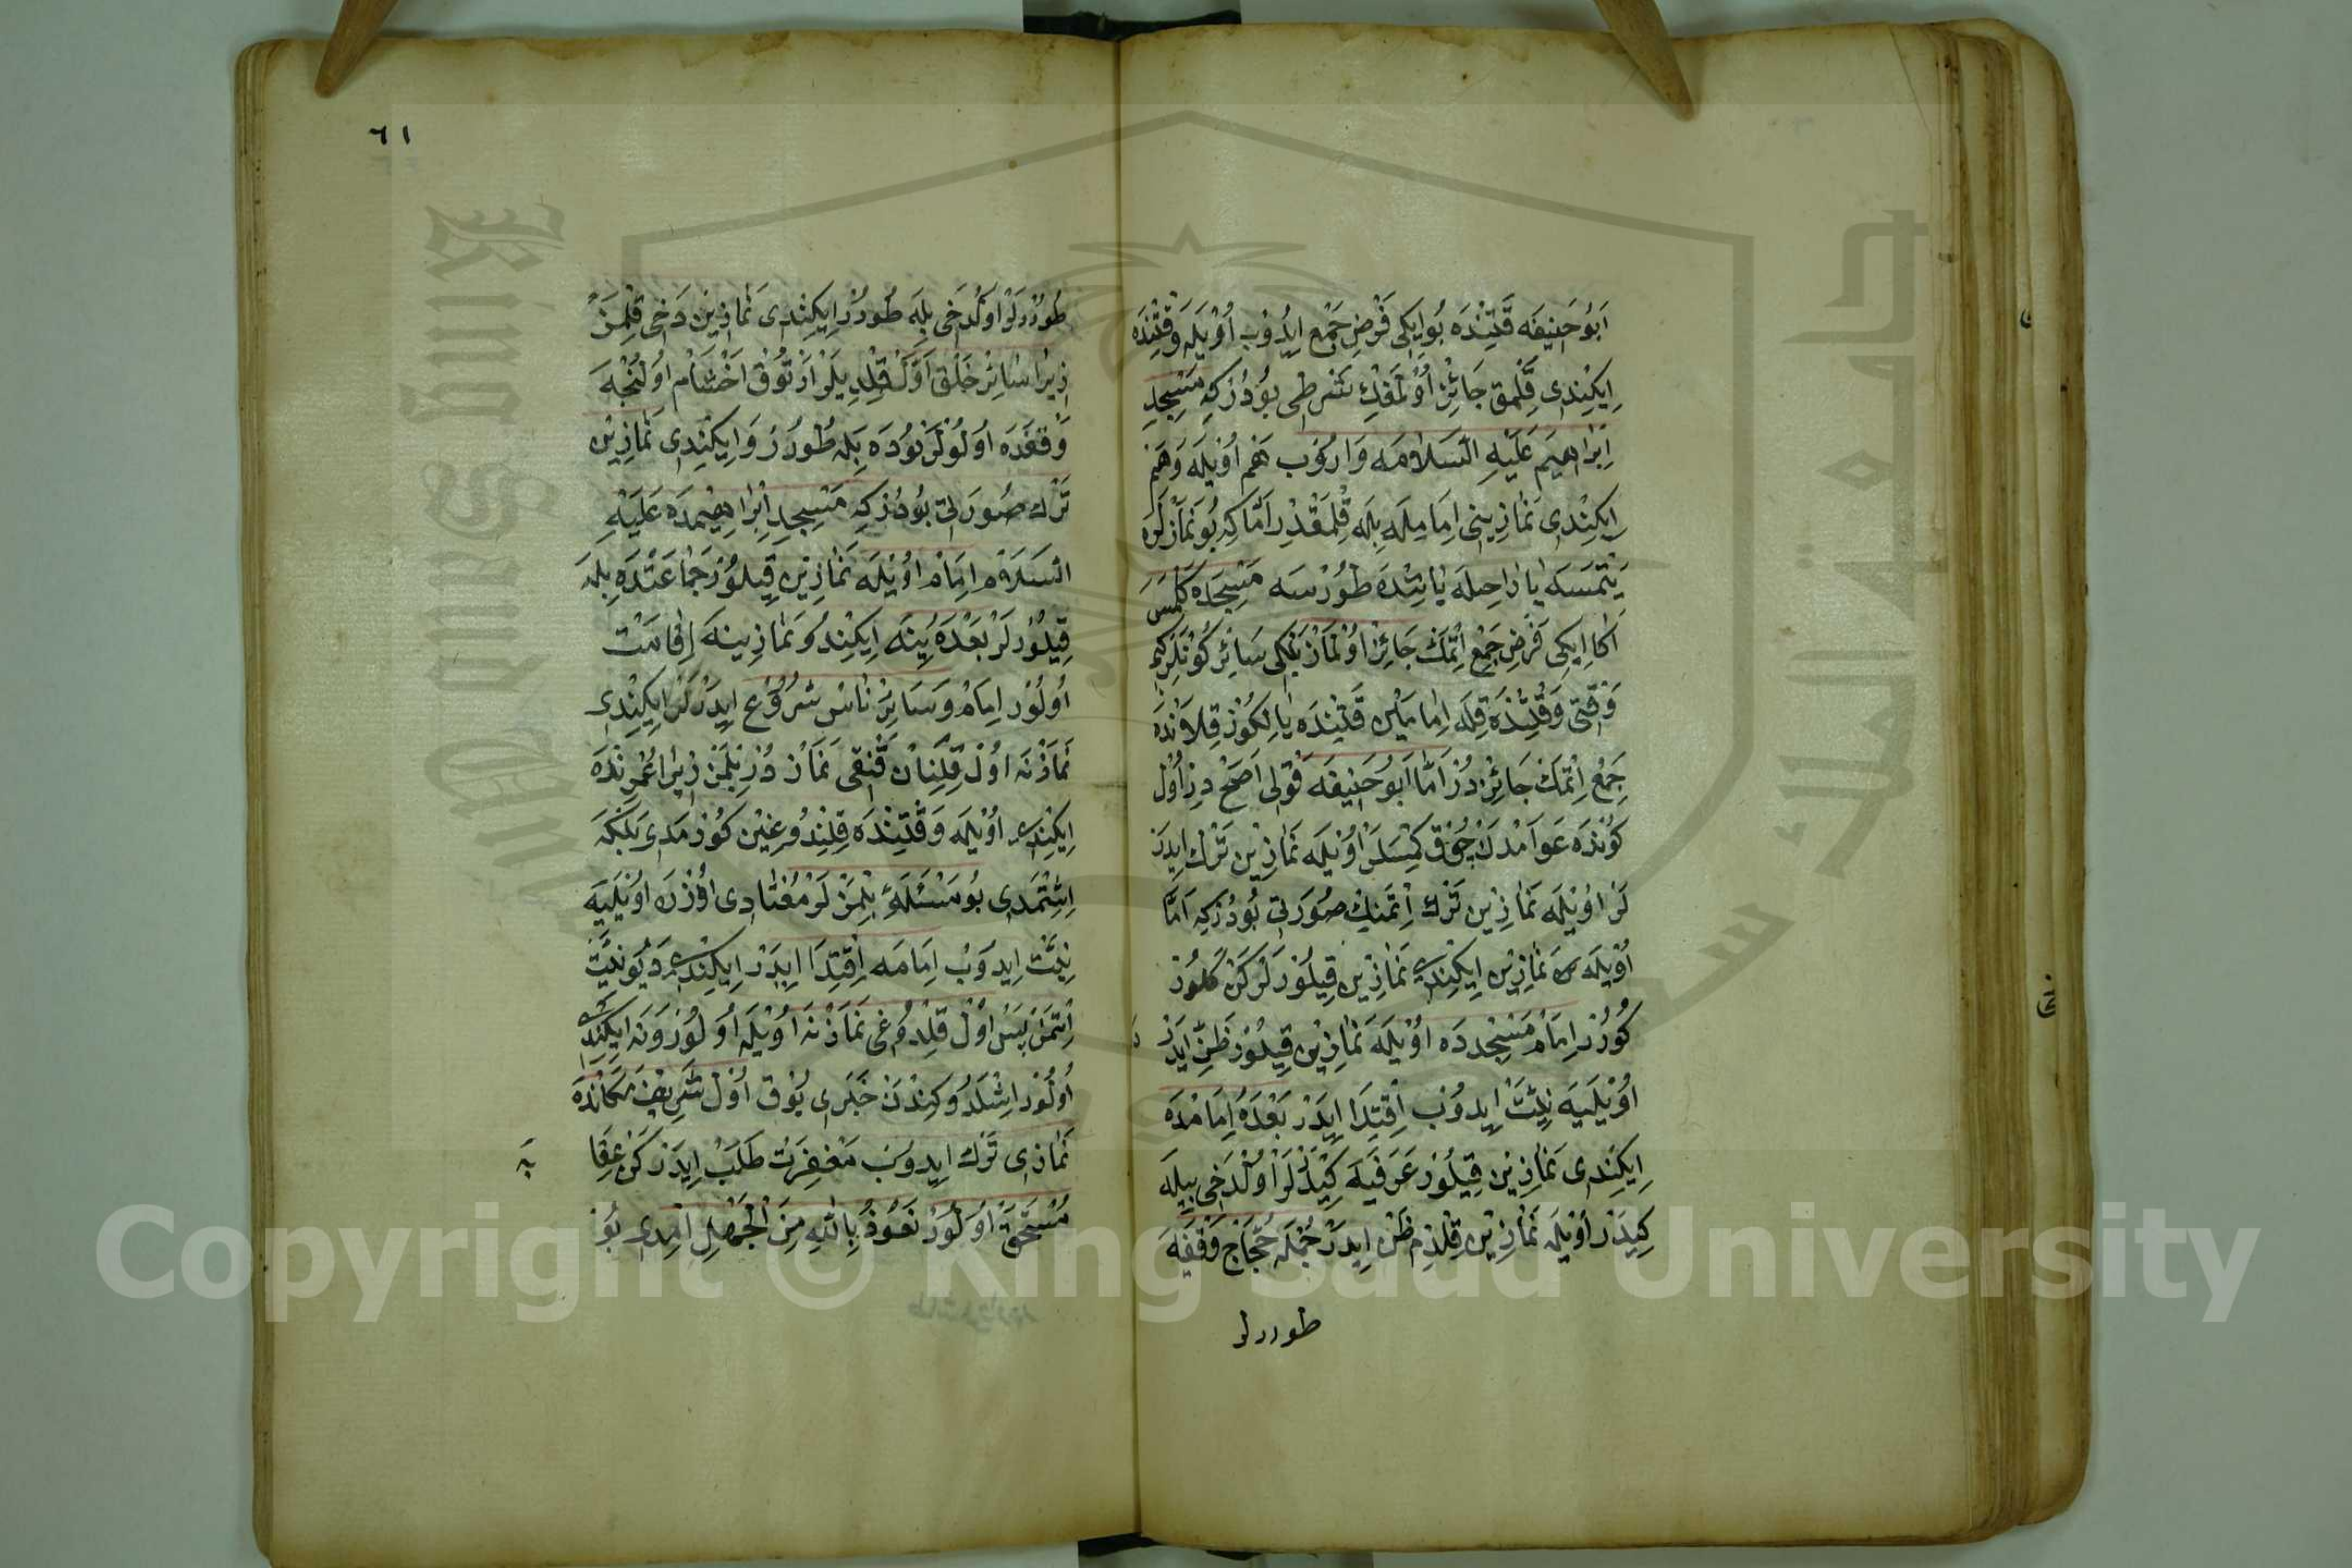 اَبُو حَنِيفَه قَتِنْدَه بُو اِيكِى فَرْضِ جَمْع اِيدُوب اُوْيلَه وَقْتِنْدَه
اِيكِنْدِى قِلْمَق جَائِز اُولْمَغِك شَرْطِى بُودُرْ كِه مَسْجِدِ
اِبْرَاهِيم عَلَيْهِ السَّلَامَه وَارُوب هَم اُوْيلَه وَهَم
اِيكِنْدِى نَمَازِينِى اِمَامِلَه بِلَه قِلْمَقْدِر اَمَّا كِه بُو نَمَازْلَرَه
يَتْمَسَه يَا رَاحِلَه يَاشِنْدَه طُورْسَه مَسْجِدَه كَلْمَسَ
اَكَا اِيكِى فَرْضِ جَمْع اِتْمَك جَائِز اُولْمَاز بَلْكِى سَائِر كُونْلَرْكِبِى
وَقْتِى وَقْتِنْدَه قِلَه اِمَامَيْن قَتِنْدَه يَالِكُوز قِلَانْدَه
جَمْع اِتْمَك جَائِزْدُر اَمَّا اَبُو حَنِيفَه قَوْلِى اَصَحْ دِر اُول
كُونْدَه عَوَامْدَن چُوق كِمْسَلَر اُوْيلَه نَمَازِين تَرْك اِيدَر
لَر اُوْيلَه نَمَازِين تَرْك اِتْمَنِك صُورَتِى بُودُرْكِه اَمَّا
اُوْيلَه نَمَازِين اِيكِنْدِى نَمَازِين قِيلُورلَركَن كَلُور
كُورُر اِمَام مَسْجِددَه اُوْيلَه نَمَازِين قِيلُور ظَن اِيدَر
اُوْيلَيَه نِيَّت اِيدُوب اِقْتِدَا اِيدَر بَعْدَه اِمَامْدَه
اِيكِنْدِى نَمَازِين قِيلُور عَرَفَيَه كِيدَرْلَر اُولْدَخِى بِيلَه
كِيدَر اُوْيلَه نَمَازِين قِلْدِم ظَن اِيدَر جُمْلَه حُجَّاج وَقْفَيَه
طوررلر
٦١
طُورُرلَر اُولْدَخِى بِلَه طُورُر اِيكِنْدِى نَمَازِين دَخِى قِلْمَز
زِيرَا سَائِر خَلْق اَوَّل قِلْدِيلَر اَرْتُوق اَخْشَام اُولُنْجَه
وَقْفَدَه اُولُورلَر بُودَه بِلَه طُورُر وَاِيكِنْدِى نَمَازِين
تَرْك صُورَتِى بُودُرْكِه مَسْجِدِ اِبْرَاهِيمْدَه عَلَيْهِ
السَّلَام اِمَام اُوْيلَه نَمَازِين قِيلُور جَمَاعَتْدَه بِلَه
قِيلُورلَر بَعْدَه يِنَه اِيكِنْدُو نَمَازِينَه اِقَامَتْ
اُولُور اِمَام وَسَائِر نَاس شُرُوع اِيدَرْلَر اِيكِنْدِى
نَمَازْنَه اُول قِلِنَان قَنْقِى نَمَازدُر بِلْمَز زِيرَا عُمْرِنْدَه
اِيكِنْدِى اُوْيلَه وَقْتِنْدَه قِلِنْدُوغِين كُورْمَدِى بَلْكَه
اِشِتْمَدِى بُو مَسْئَلَه بِلْمَزْلَر مُعْتَادِى اُوزْرَه اُوْيلَيَه
نِيَّت اِيدُوب اِمَامَه اِقْتِدَا اِيدَر اِيكِنْدِى دَيُو نِيَّت
اِتْمَز پَس اُول قِلْدُوغِى نَمَازْنَه اُوْيلَه اُولُور وَنَه اِيكِنْدِى
اُولُور اِشْلَدُوكِنْدَن خَبَرِى يُوق اُول شَرِيف مَكَانْدَه
نَمَازِى تَرْك اِيدُوب مَغْفِرَت طَلَب اِيدَركَن عِقَا
بَه
مُسْتَحَقّ اُولُور نَعُوذُ بِاللّٰهِ مِنَ الْجَهْلِ اِمْدِى بُو
Copyright © King Saud University